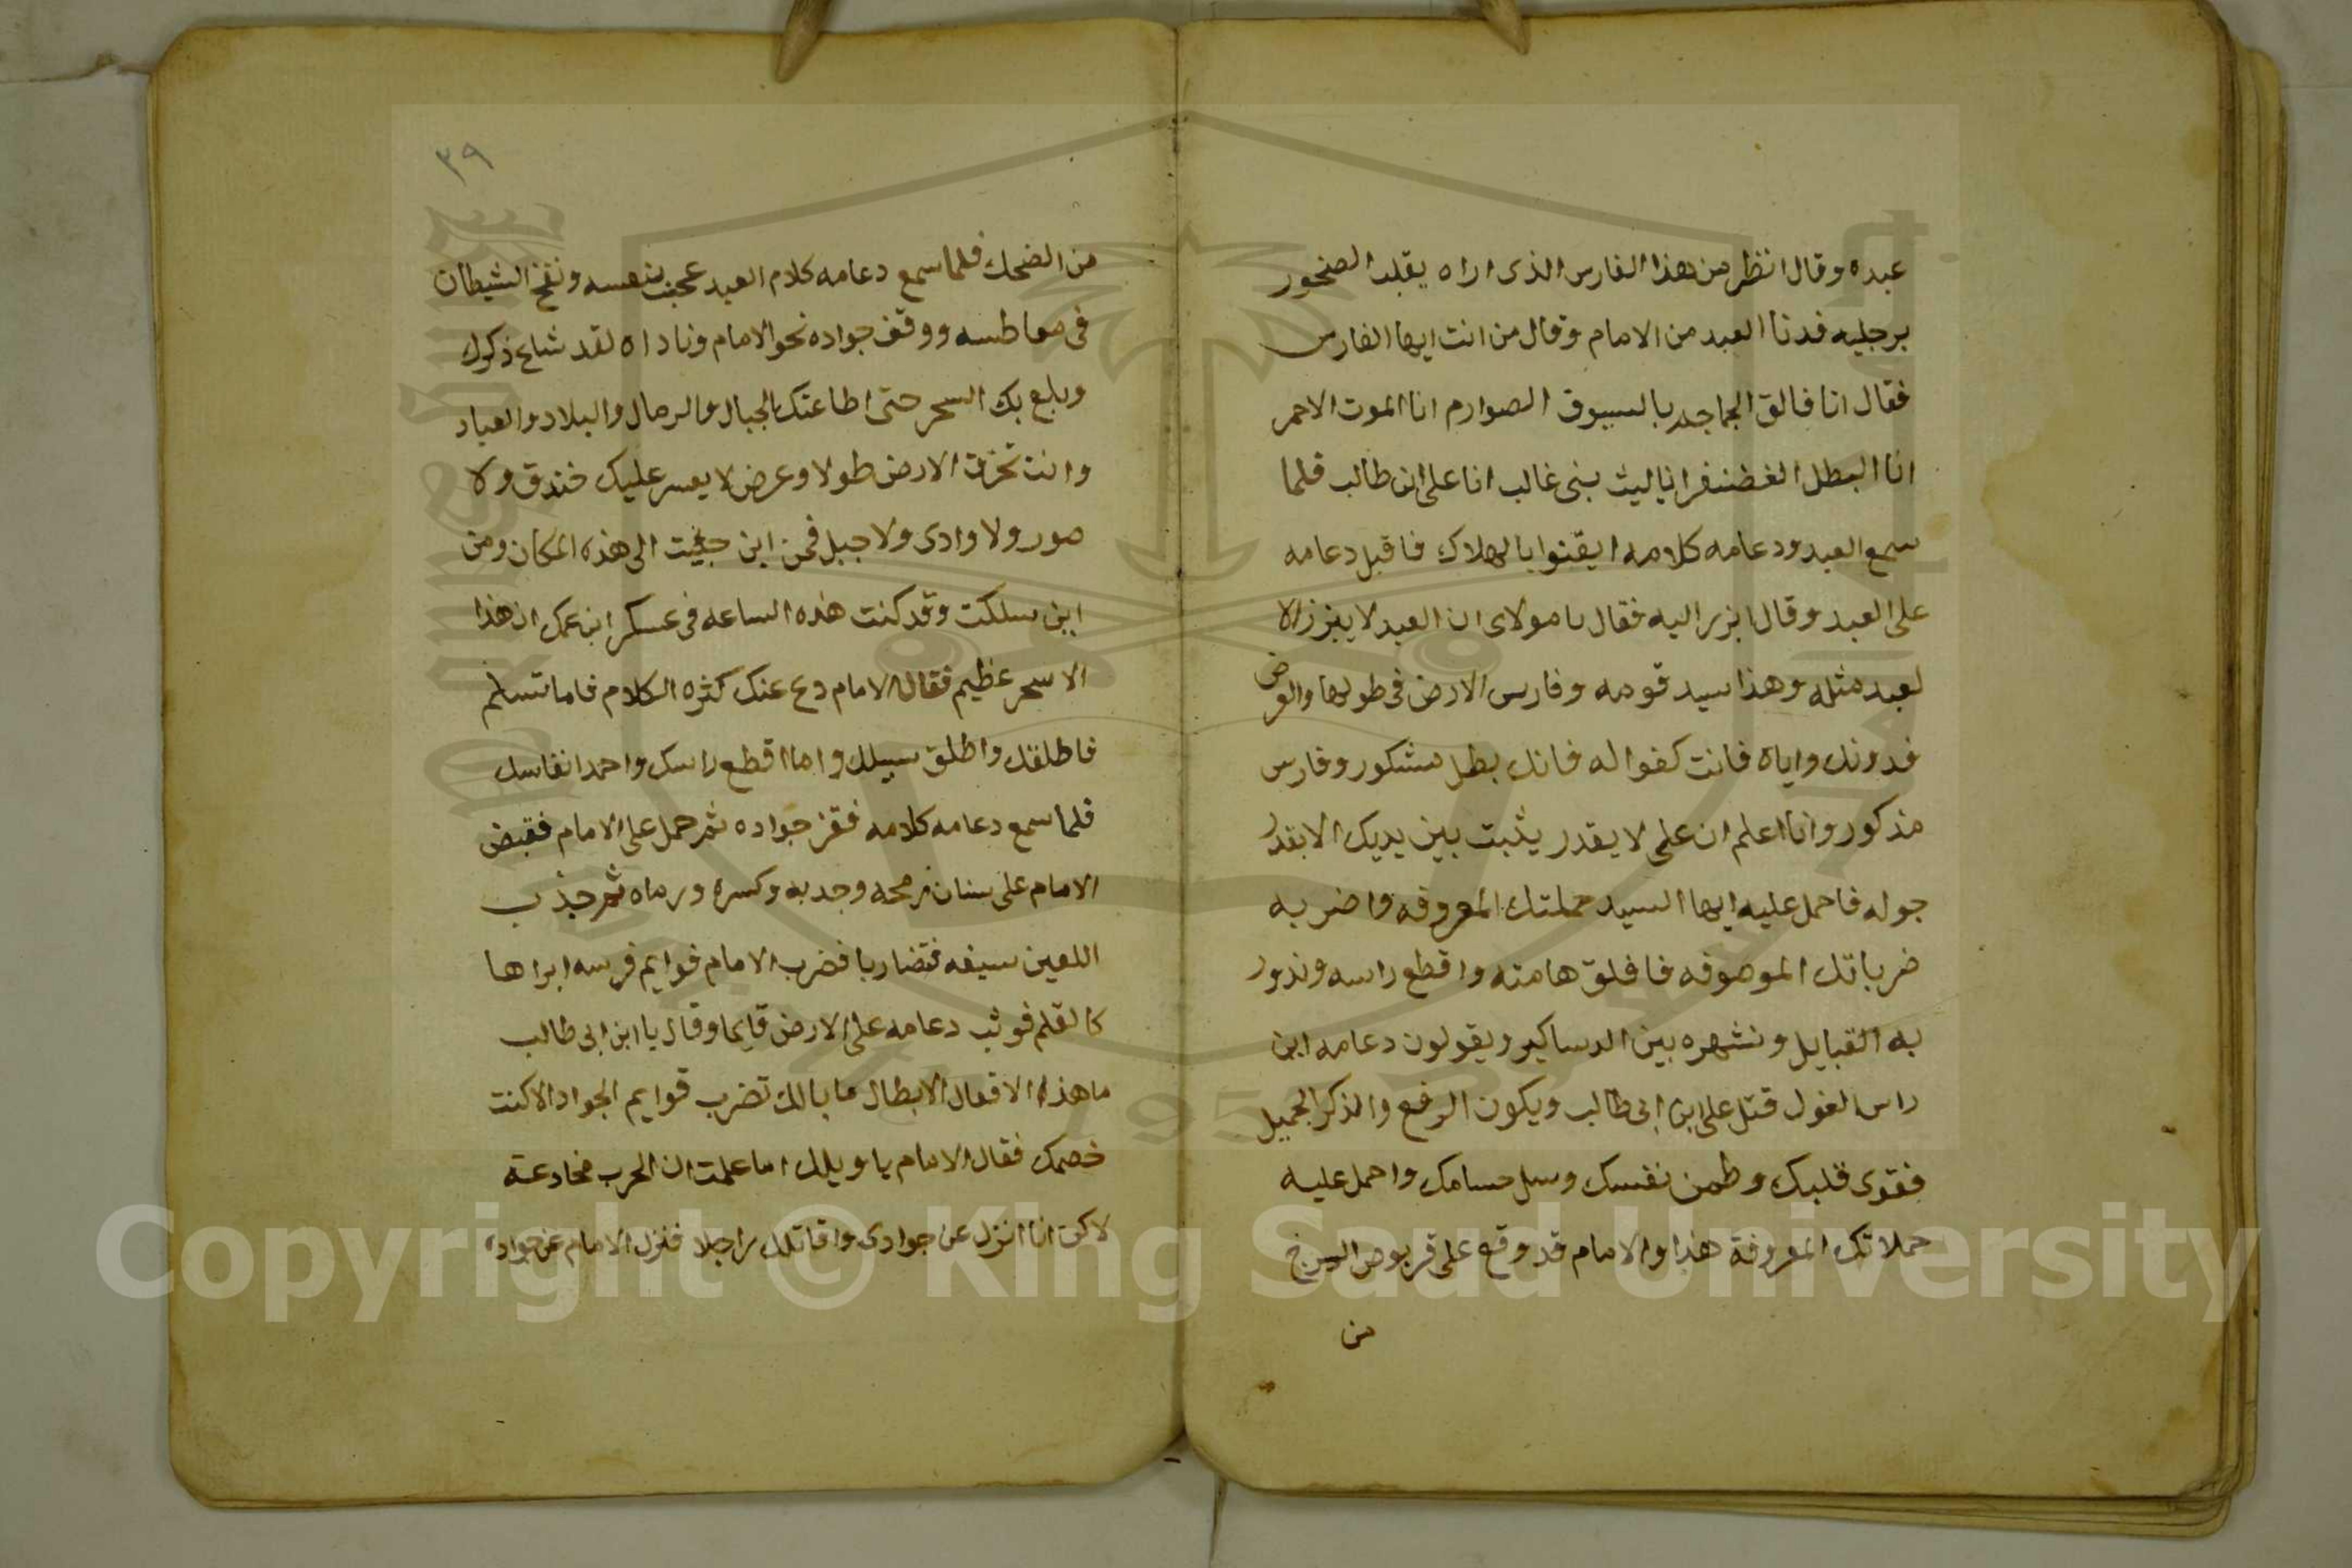 عبده وقال انظر من هذا الفارس الذى اراه يقلب الصخور
برجليه فدنا العبد من الامام وقال من انت ايها الفارس
فقال انا فالق الجماجم بالسيوف الصوارم انا الموت الاحمر
انا البطل الغضنفر انا ليث بنى غالب انا على ابن طالب فلما
سمع العبد ودعامه كلامه ايقنوا بالهلاك فاقبل دعامه
على العبد وقال ابرز اليه فقال يا مولاى ان العبد لا يبرز الا
لعبد مثله وهذا سيد قومه وفارس الارض فى طولها والعرض
فدونك واياه فانت كفوا له فانك بطل مشكور وفارس
مذكور وانا اعلم ان على لا يقدر يثبت بين يديك الا بقدر
جوله فاحمل عليه ايها السيد حملتك المعروفه واضربه
ضرباتك الموصوفه فافلق هامته واقطع راسه وندور
به القبايل ونشهره بين الدساكير ويقولون دعامه ابن
راس الغول قتل على ابن ابى طالب ويكون الرفع والذكر الجميل
فقوى قلبك وطمن نفسك وسل حسامك واحمل عليه
حملاتك المعروفة هذا والامام قد وقع على قربوص السرج
من
٣٩
من الضحك فلما سمع دعامه كلام العبد عجب بنفسه ونفخ الشيطان
فى معاطسه ووقف جواده نحو الامام وناداه لقد شاع ذكرك
وبلع بك السحر حتى اطاعتك الجبال والرمال والبلاد والعباد
وانت تخرق الارض طولا وعرض لا يعسر عليك خندق ولا
صور ولا وادى ولا جبل فمن اين جيت الى هذه المكان ومن
اين سلكت وقد كنت هذه الساعه فى عسكر ابن عمك ان هذا
الا سحر عظيم فقال الامام دع عنك كثره الكلام فاما تسلم
فاطلقك واطلق سبيلك واما اقطع راسك واخمد انفاسك
فلما سمع دعامه كلامه فقز جواده ثم حمل على الامام فقبض
الامام على سنان رمحه وجدبه وكسره ورماه ثم جذب
اللعين سيفه فتضاربا فضرب الامام قوايم فرسه ابراها
كالقلم فوثب دعامه على الارض قايما وقال يا ابن ابى طالب
ما هذه الافعال الابطال ما بالك تضرب قوايم الجواد الا كنت
خصمك فقال الامام يا ويلك اما علمت ان الحرب مخادعة
لاكن انا انزل عن جوادى واقاتلك راجلا فنزل الامام عن جواده
Copyright © King Saud University